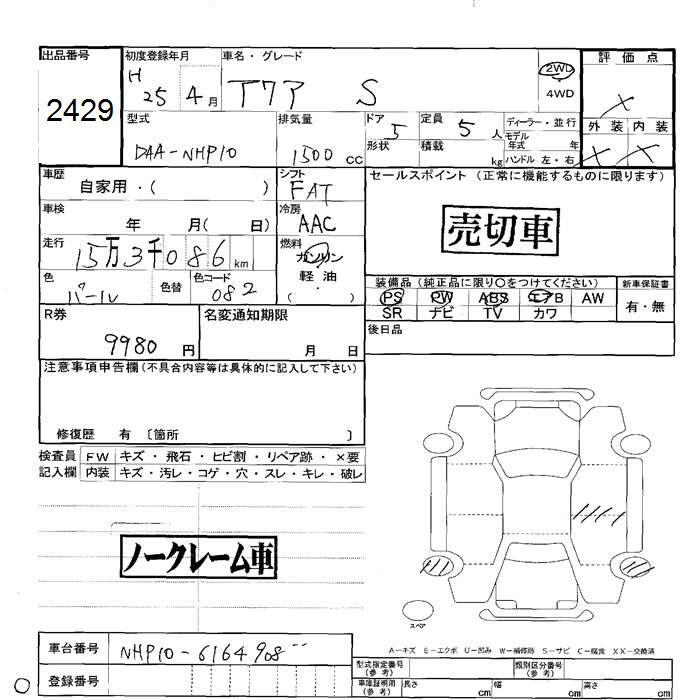 出品番号 初度登録年月 車名・グレード 評価点
2429 H 25 4月 アクア S 2WD 4WD ×
型式 排気量 ドア 定員 ディーラー・並行 外装 内装
DAA-NHP10 1500 cc 5 5 人 モデル年式 年 × ×
形状 積載 kg ハンドル 左・右
車歴 シフト セールスポイント (正常に機能するものに限ります)
自家用・( ) FAT
車検 冷房 売切車
年 月( 日) AAC
走行 燃料
15万3千086km ガソリン
軽油
色 色替 色コード ( ・ ) 装備品(純正品に限り○をつけてください) 新車保証書
パール 082 PS PW ABS エアB AW 有・無
SR ナビ TV カワ
R券 名変通知期限 後日品
9980 円 月 日
注意事項申告欄(不具合内容等は具体的に記入して下さい)
修復歴 有 〔箇所 〕
検査員 FW キズ・飛石・ヒビ割・リペア跡・×要
記入欄 内装 キズ・汚レ・コゲ・穴・スレ・キレ・破レ
ノークレーム車
スペア
A-キズ E-エクボ U-凹み W-補修跡 S-サビ C-腐食 XX-交換済
車台番号 NHP10-6164908 型式指定番号(参考) 類別区分番号(参考)
登録番号 車庫証明用(参考) 長さ cm 幅 cm 高さ cm